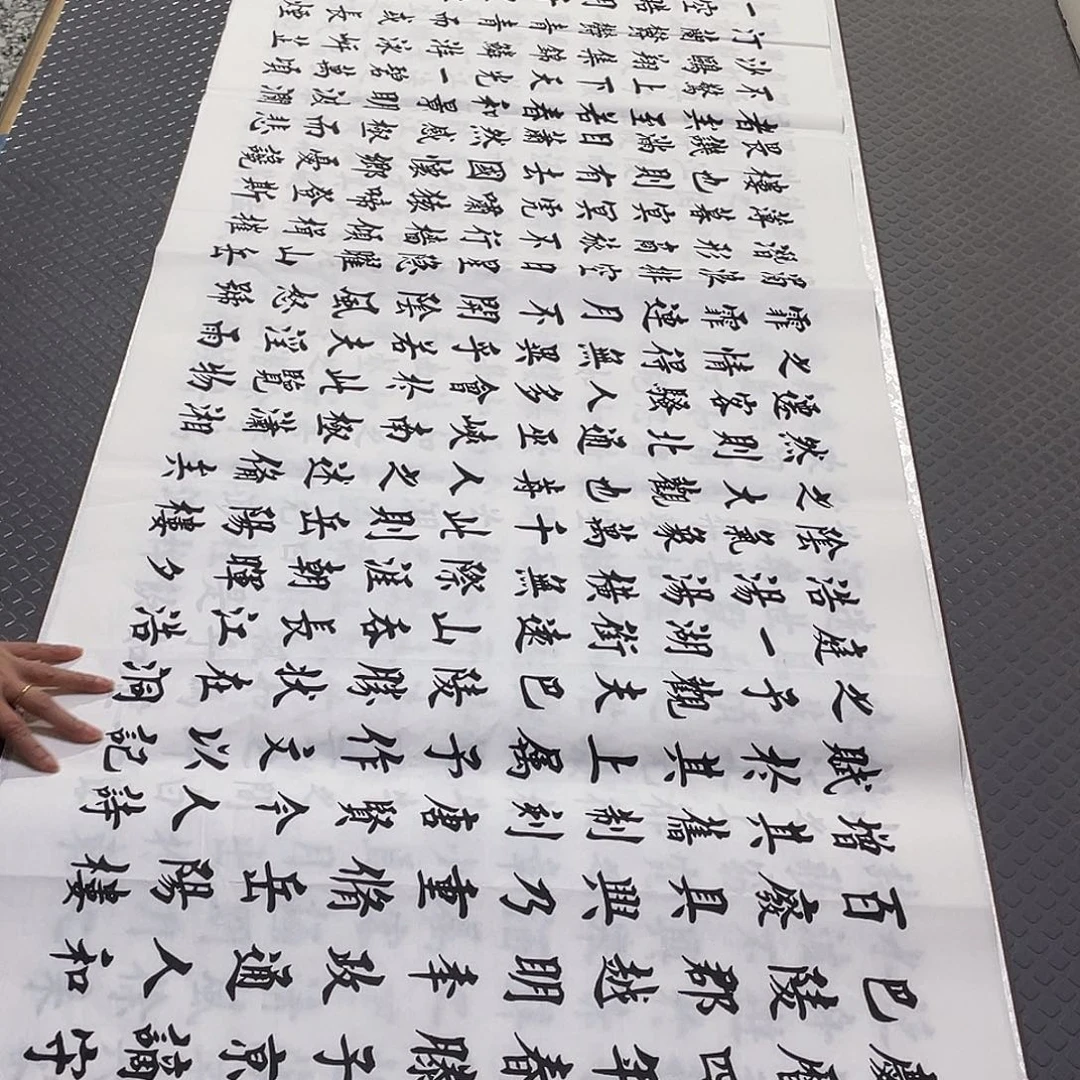 慶曆四年春滕子京謫守
巴陵郡越明年政通人和
百廢具興乃重脩岳陽樓
增其舊制刻唐賢今人詩
賦於其上屬予作文以記
之予觀夫巴陵勝狀在洞
庭一湖銜遠山吞長江浩
浩湯湯橫無際涯朝暉夕
陰氣象萬千此則岳陽樓
之大觀也前人之述備矣
然則北通巫峽南極瀟湘
遷客騷人多會於此覽物
之情得無異乎若夫淫雨
霏霏連月不開陰風怒號
濁浪排空日星隱曜山岳
潛形商旅不行檣傾楫摧
薄暮冥冥虎嘯猿啼登斯
樓也則有去國懷鄉憂讒
畏譏滿目蕭然感極而悲
者矣至若春和景明波瀾
不驚上下天光一碧萬頃
沙鷗翔集錦鱗游泳岸芷
汀蘭鬱鬱青青而或長煙
一空皓月